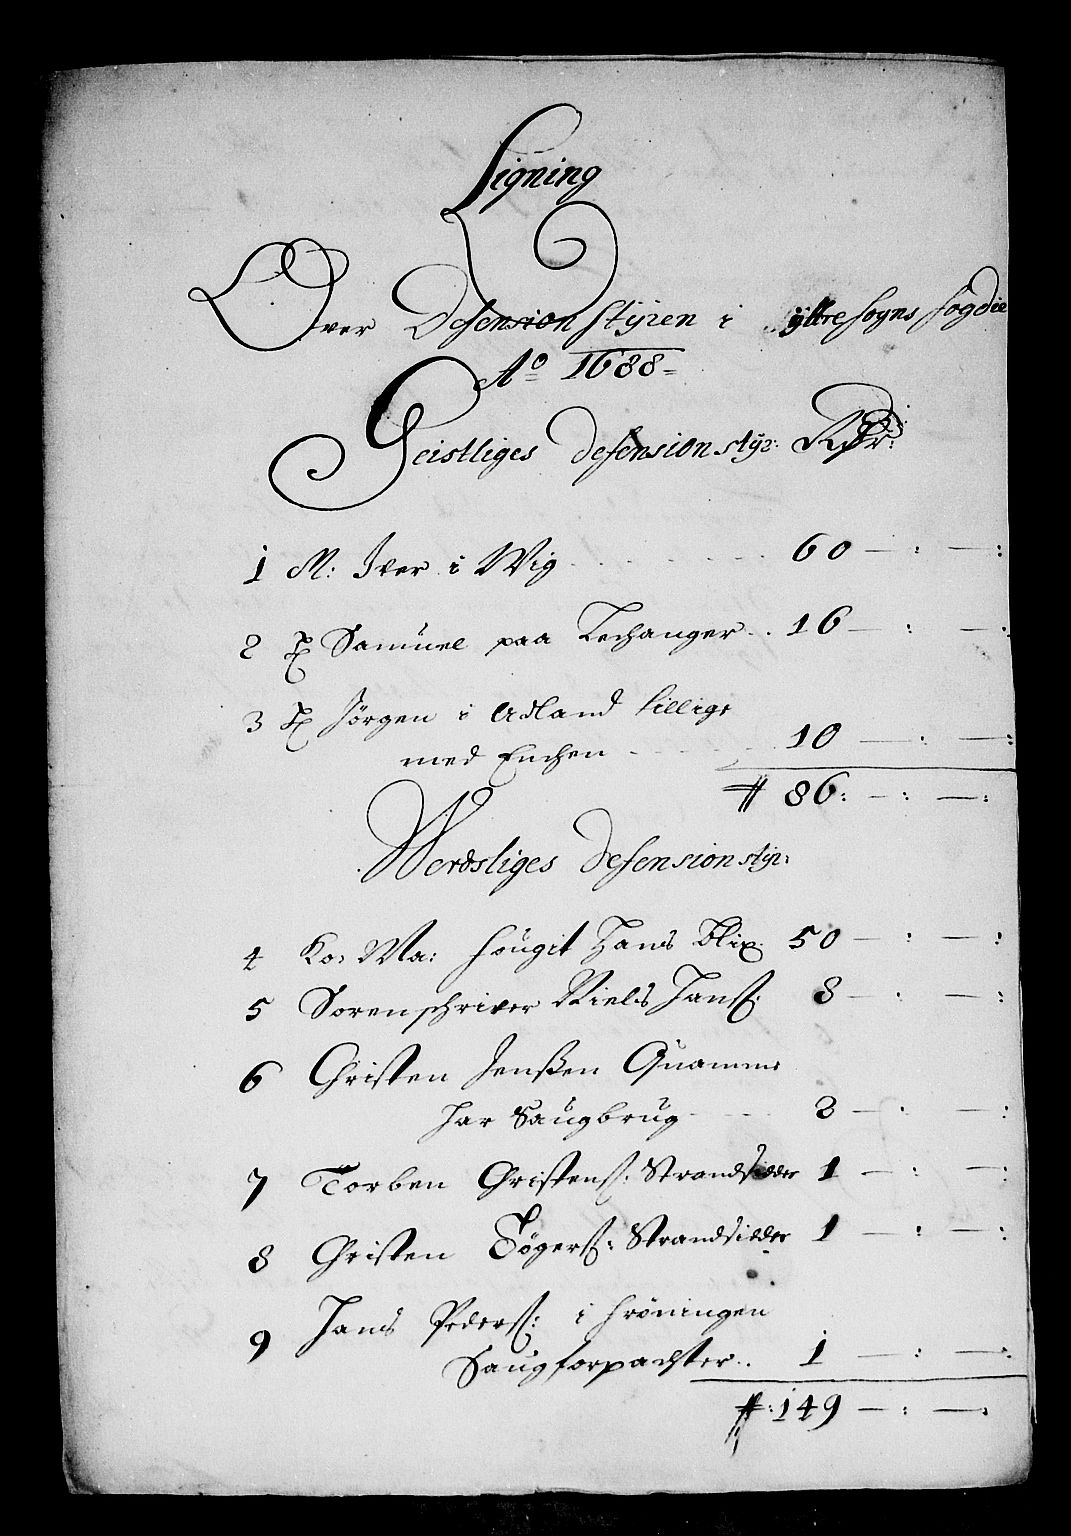 Ligning
Over Defension styren i yttre sogns fogdie
Aº 1688
Geistliges defension styr: Rdr:
1 M: Iver i Wig 60 — : — :
2 H Samuel paa Lechanger 16 — : — :
3 H Jörgen i Adland tillige
med Enchen 10 — : — :
86: — : — :
Werdsliges defension styr:
4 Ko: Ma: fougit Hans Blix 50 — : — :
5 Sorenschriver Niels Hanss: 8 — : — :
6 Christen Jenßen Quamme
har Saugbrug 3 — : — :
7 Torben Christenss: Strandsidder 1 — : — :
8 Christen Tögerss: Strandsidder 1 — : — :
9 Hans Pederss: i fröningen
Saugforpachter 1 — : — :
149 — : — :